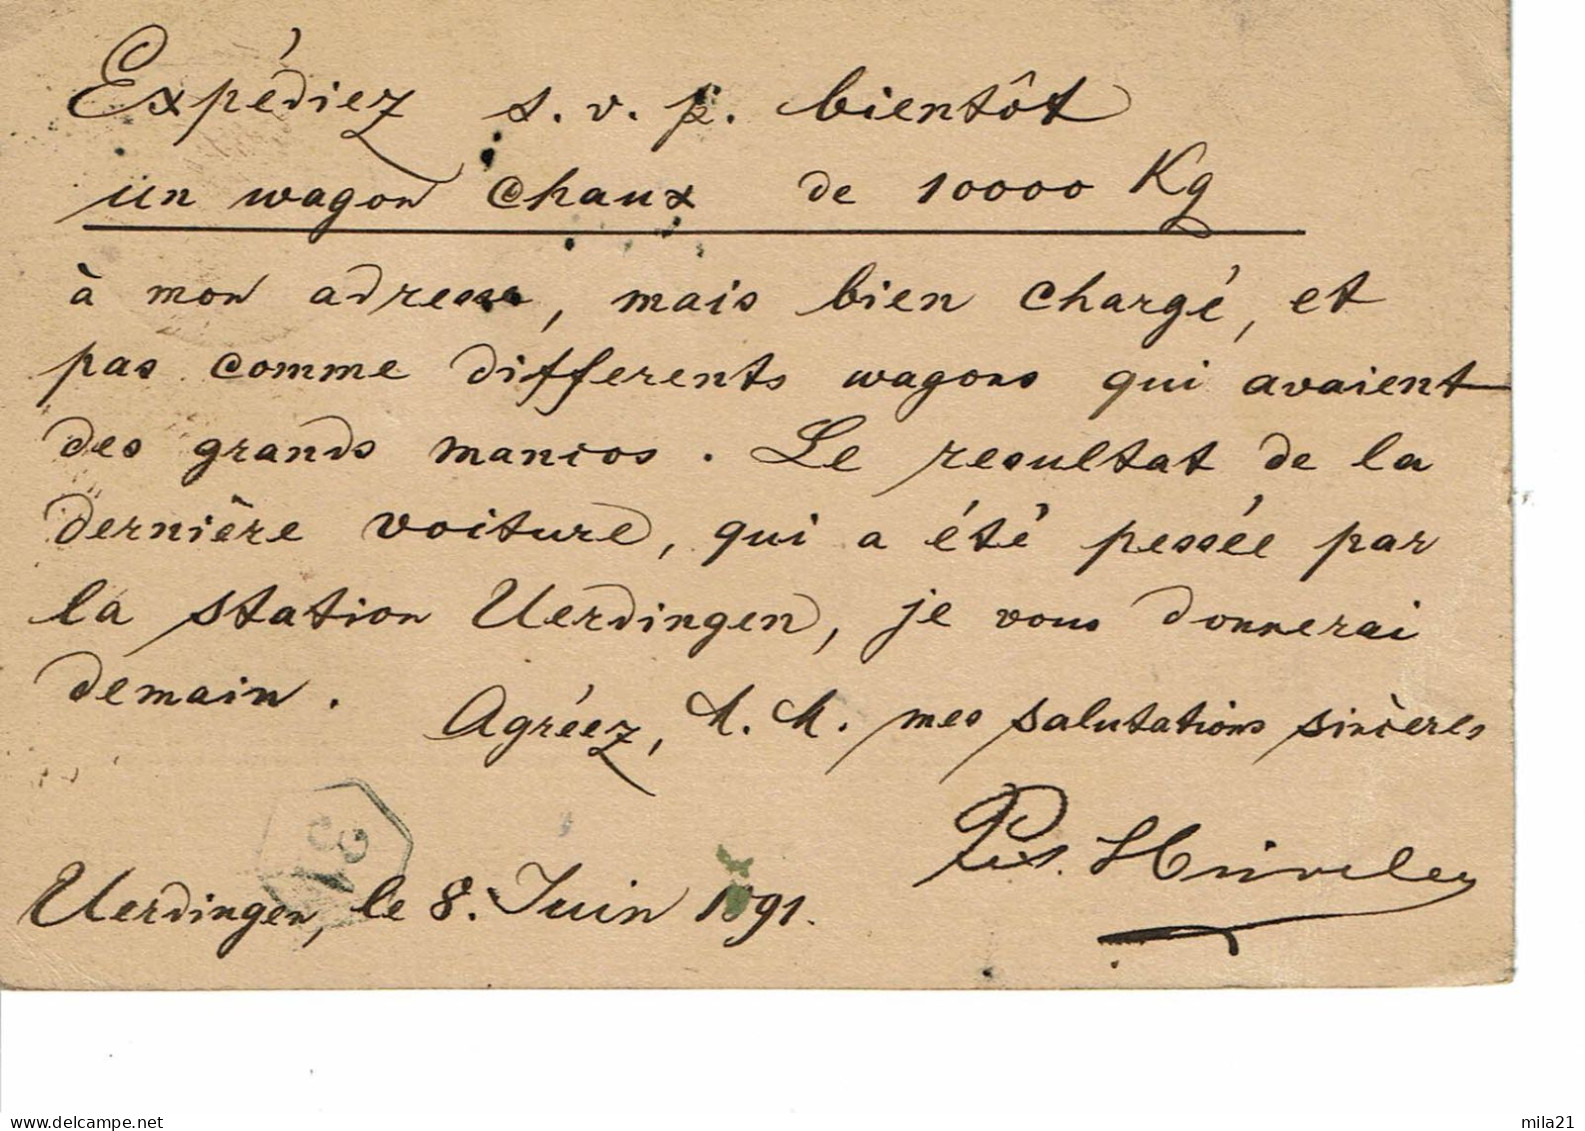 Expédiez s. v. p. bientôt
un wagon chaux de 10000 Kg
à mon adresse, mais bien chargé, et
pas comme differents wagons qui avaient
des grands mancos. Le resultat de la
dernière voiture, qui a été pessée par
la station Uerdingen, je vous donnerai
demain.
Agréez, M. M. mes salutations sincères
Uerdingen, le 8. Juin 1891.
www.delcampe.net
mila21